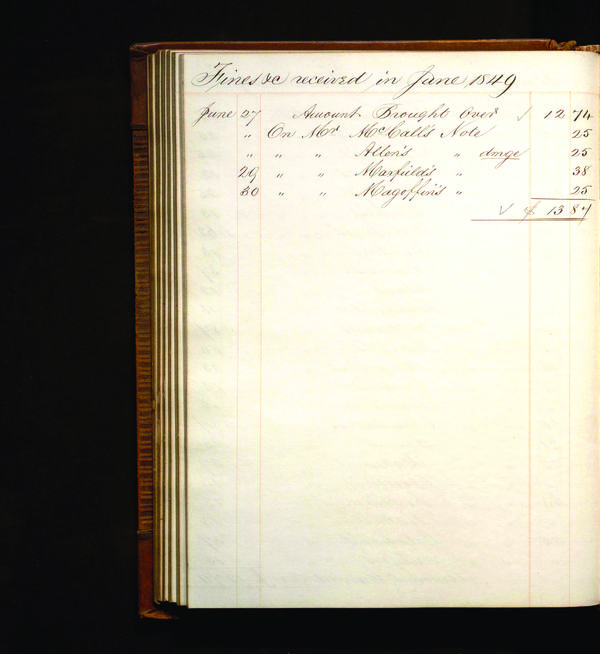 Fines &c received in June 1849
June 27 Amount Brought Over ✓ 12 74
" On Mr McCall's Note 25
" " " Allen's " dmge 25
29 " " Marfield's " 38
30 " " Magoffin's " 25
✓ $ 13 87